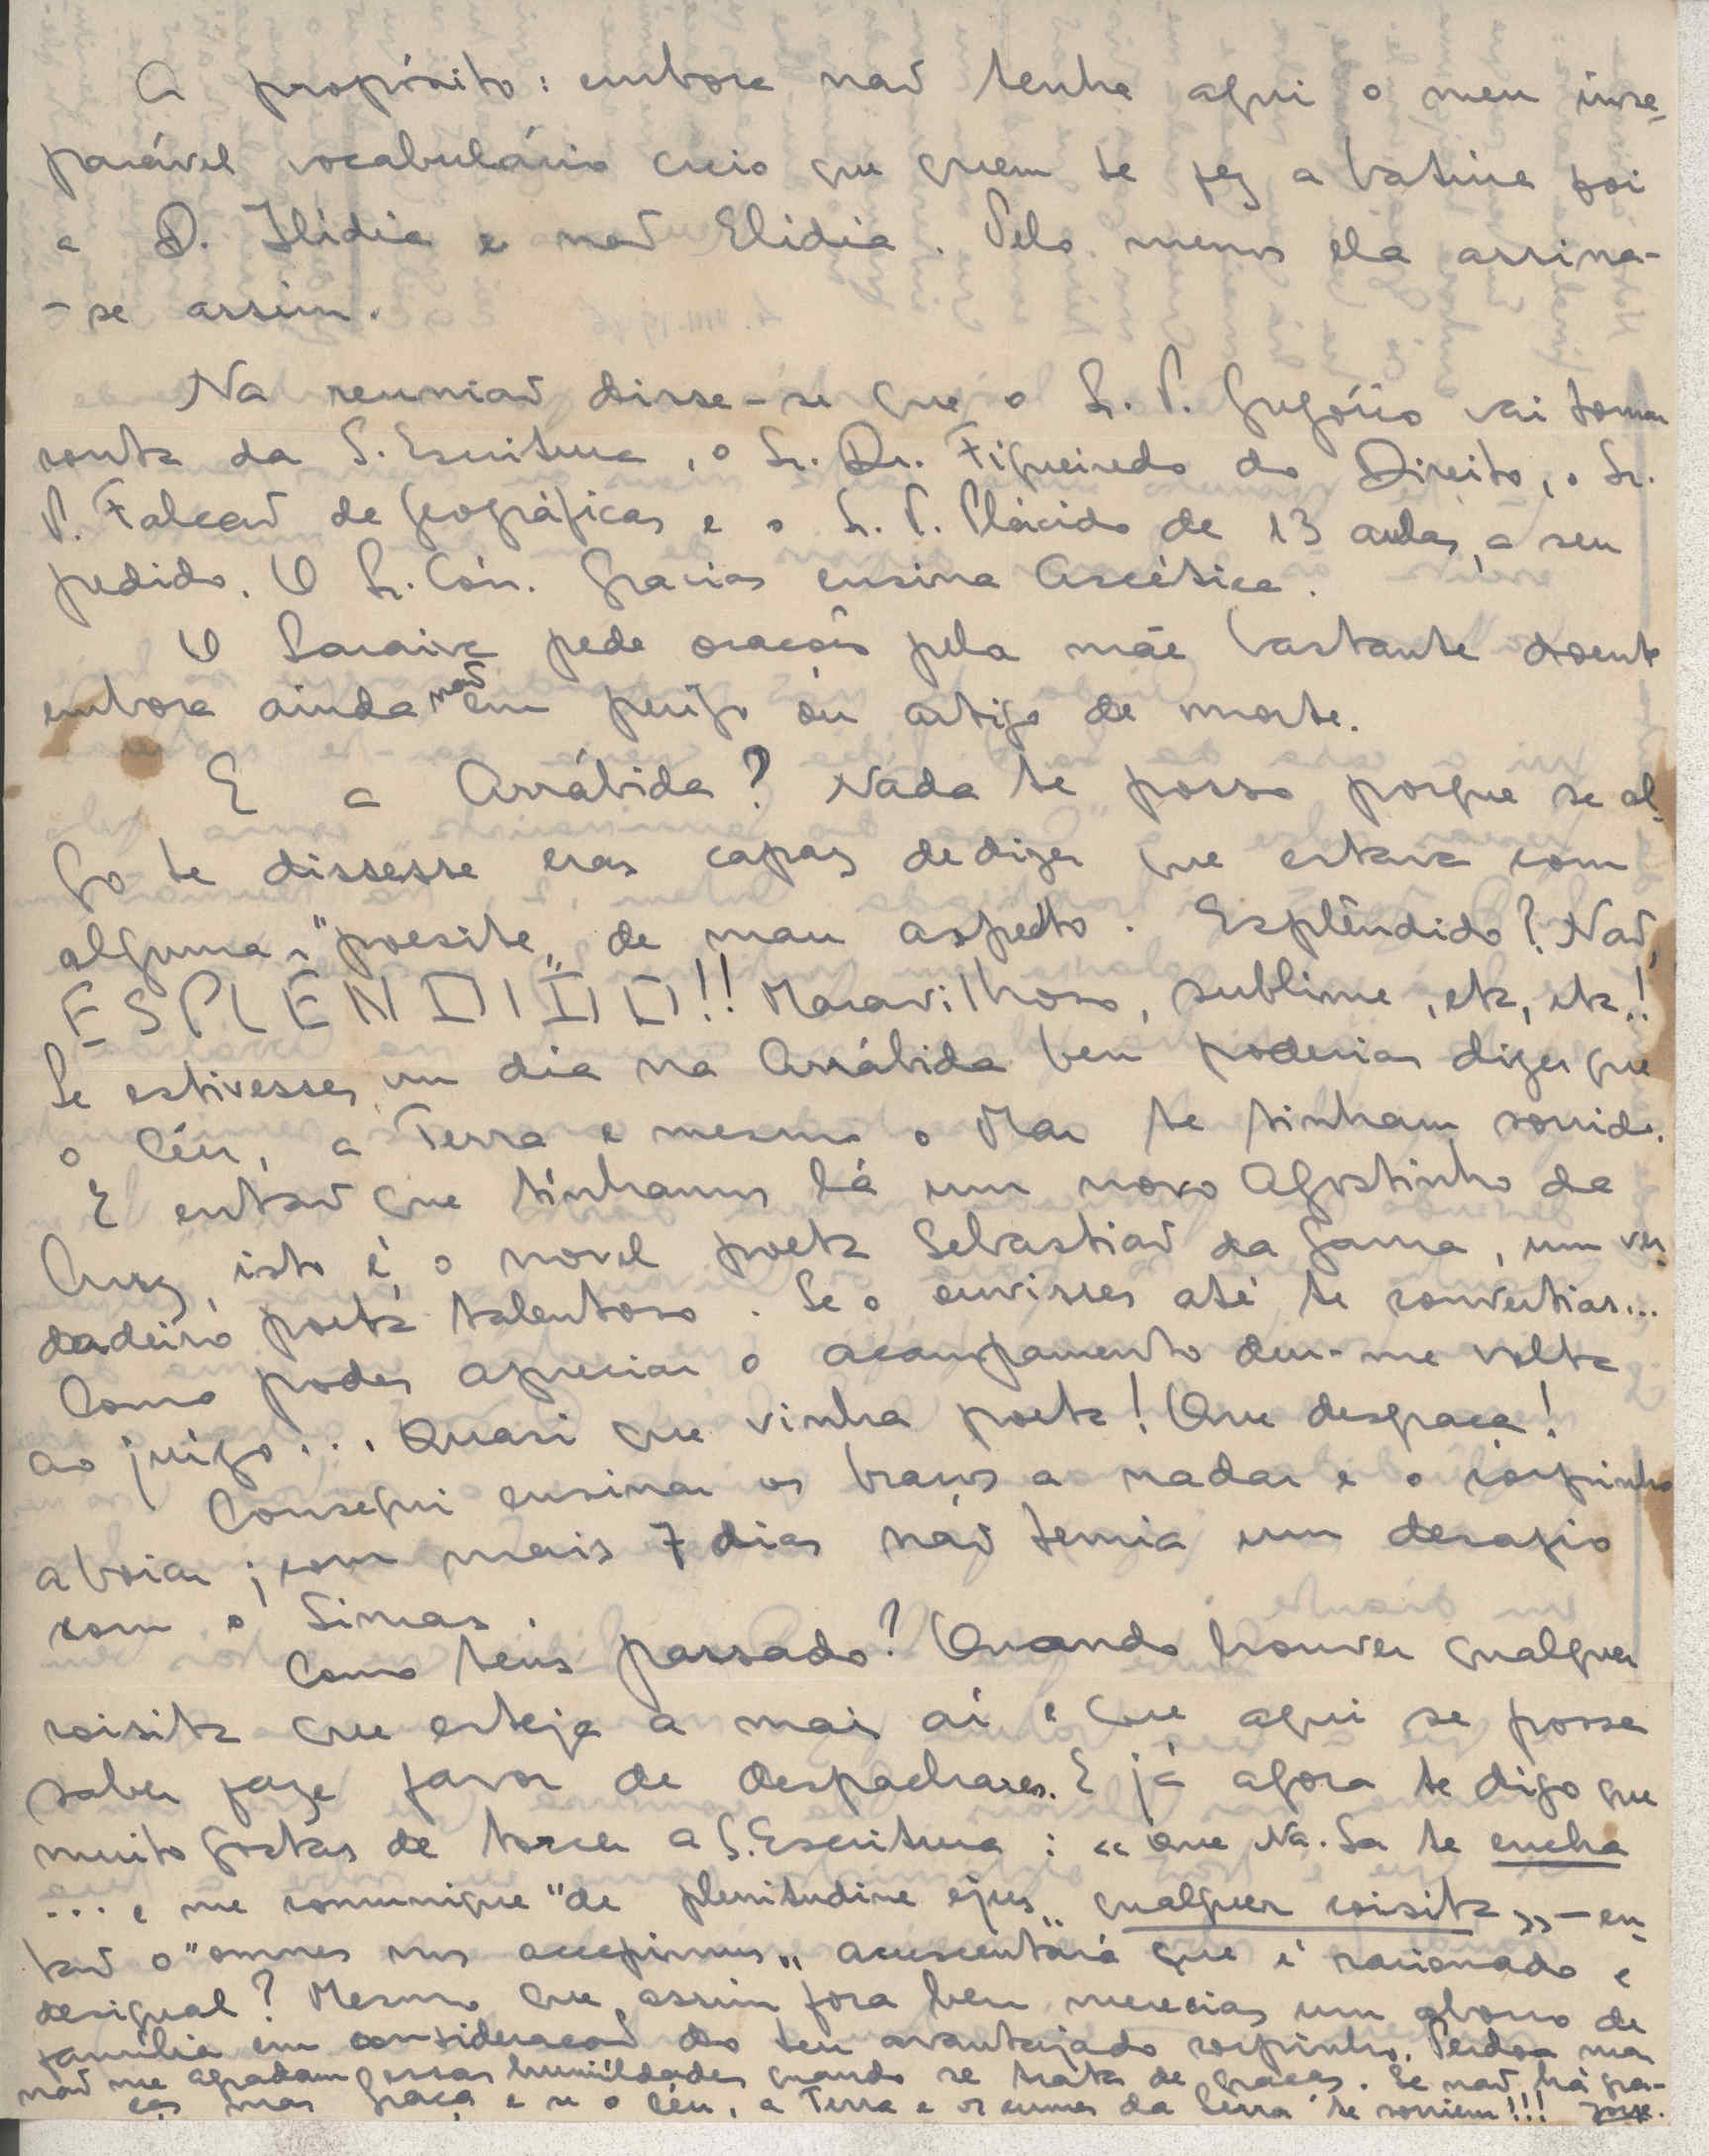 A propósito: embora não tenha aqui o meu inse-
parável vocabulário creio que quem te fez a batina foi
a D. Ilídia e não Elidia. Pelo menos ela assina-
-se assim.
Na reunião disse-se que o Sr. P. Gregório vai tomar
conta da S. Escritura, o Sr. Dr. Figueiredo do Direito, o Sr.
P. Falcão de Geográficas e o Sr. P. Plácido de 13 aulas, a seu
pedido. O Sr. Cón. Gracias ensina Ascética.
O Saraiva pede orações pela mãe bastante doente
embora ainda não em perigo ou artigo de morte.
E a Arrábida? Nada te posso porque se al-
go te dissesse eras capaz de dizer que estava com
alguma "poesite" de mau aspecto. Esplêndido? Não,
ESPLÊNDIDO!! Maravilhoso, sublime, etc, etc.!
Se estivesses um dia na Arrábida bem poderias dizer que
o Céu, a Terra e mesmo o Mar te tinham sorrido.
E então que tínhamos lá um novo Agostinho da
Cruz, isto é, o novel poeta Sebastião da Gama, um ver-
dadeiro poeta talentoso. Se o ouvisses até te convertias...
Como podes apreciar o acampamento deu-me volta
ao juízo.... Quasi que vinha poeta! Que desgraça!
Consegui ensinar os braços a nadar e o corpinho
a boiar; com mais 7 dias não temia um desafio
com o Simas.
Como tens passado? Quando houver qualquer
coisita que esteja a mais aí e que aqui se possa
saber faze favor de despachares. E já agora te digo que
muito gostas de torcer a S. Escritura: «Que Na. Sa te encha
... e me comunique "de plenitudine ejus" qualquer coisita» – en-
tão o "omnes nos accepimus" acrescentará que é racionado e
desigual? Mesmo que assim fora bem merecias um abono de
família em consideração do teu avantajado corpinho. Perdoa mas
não me agradam essas humildades quando se trata de graças. Se não há gra-
ças mas Graça e se o Céu, a Terra e os cumes da Serra te sorriem!!!